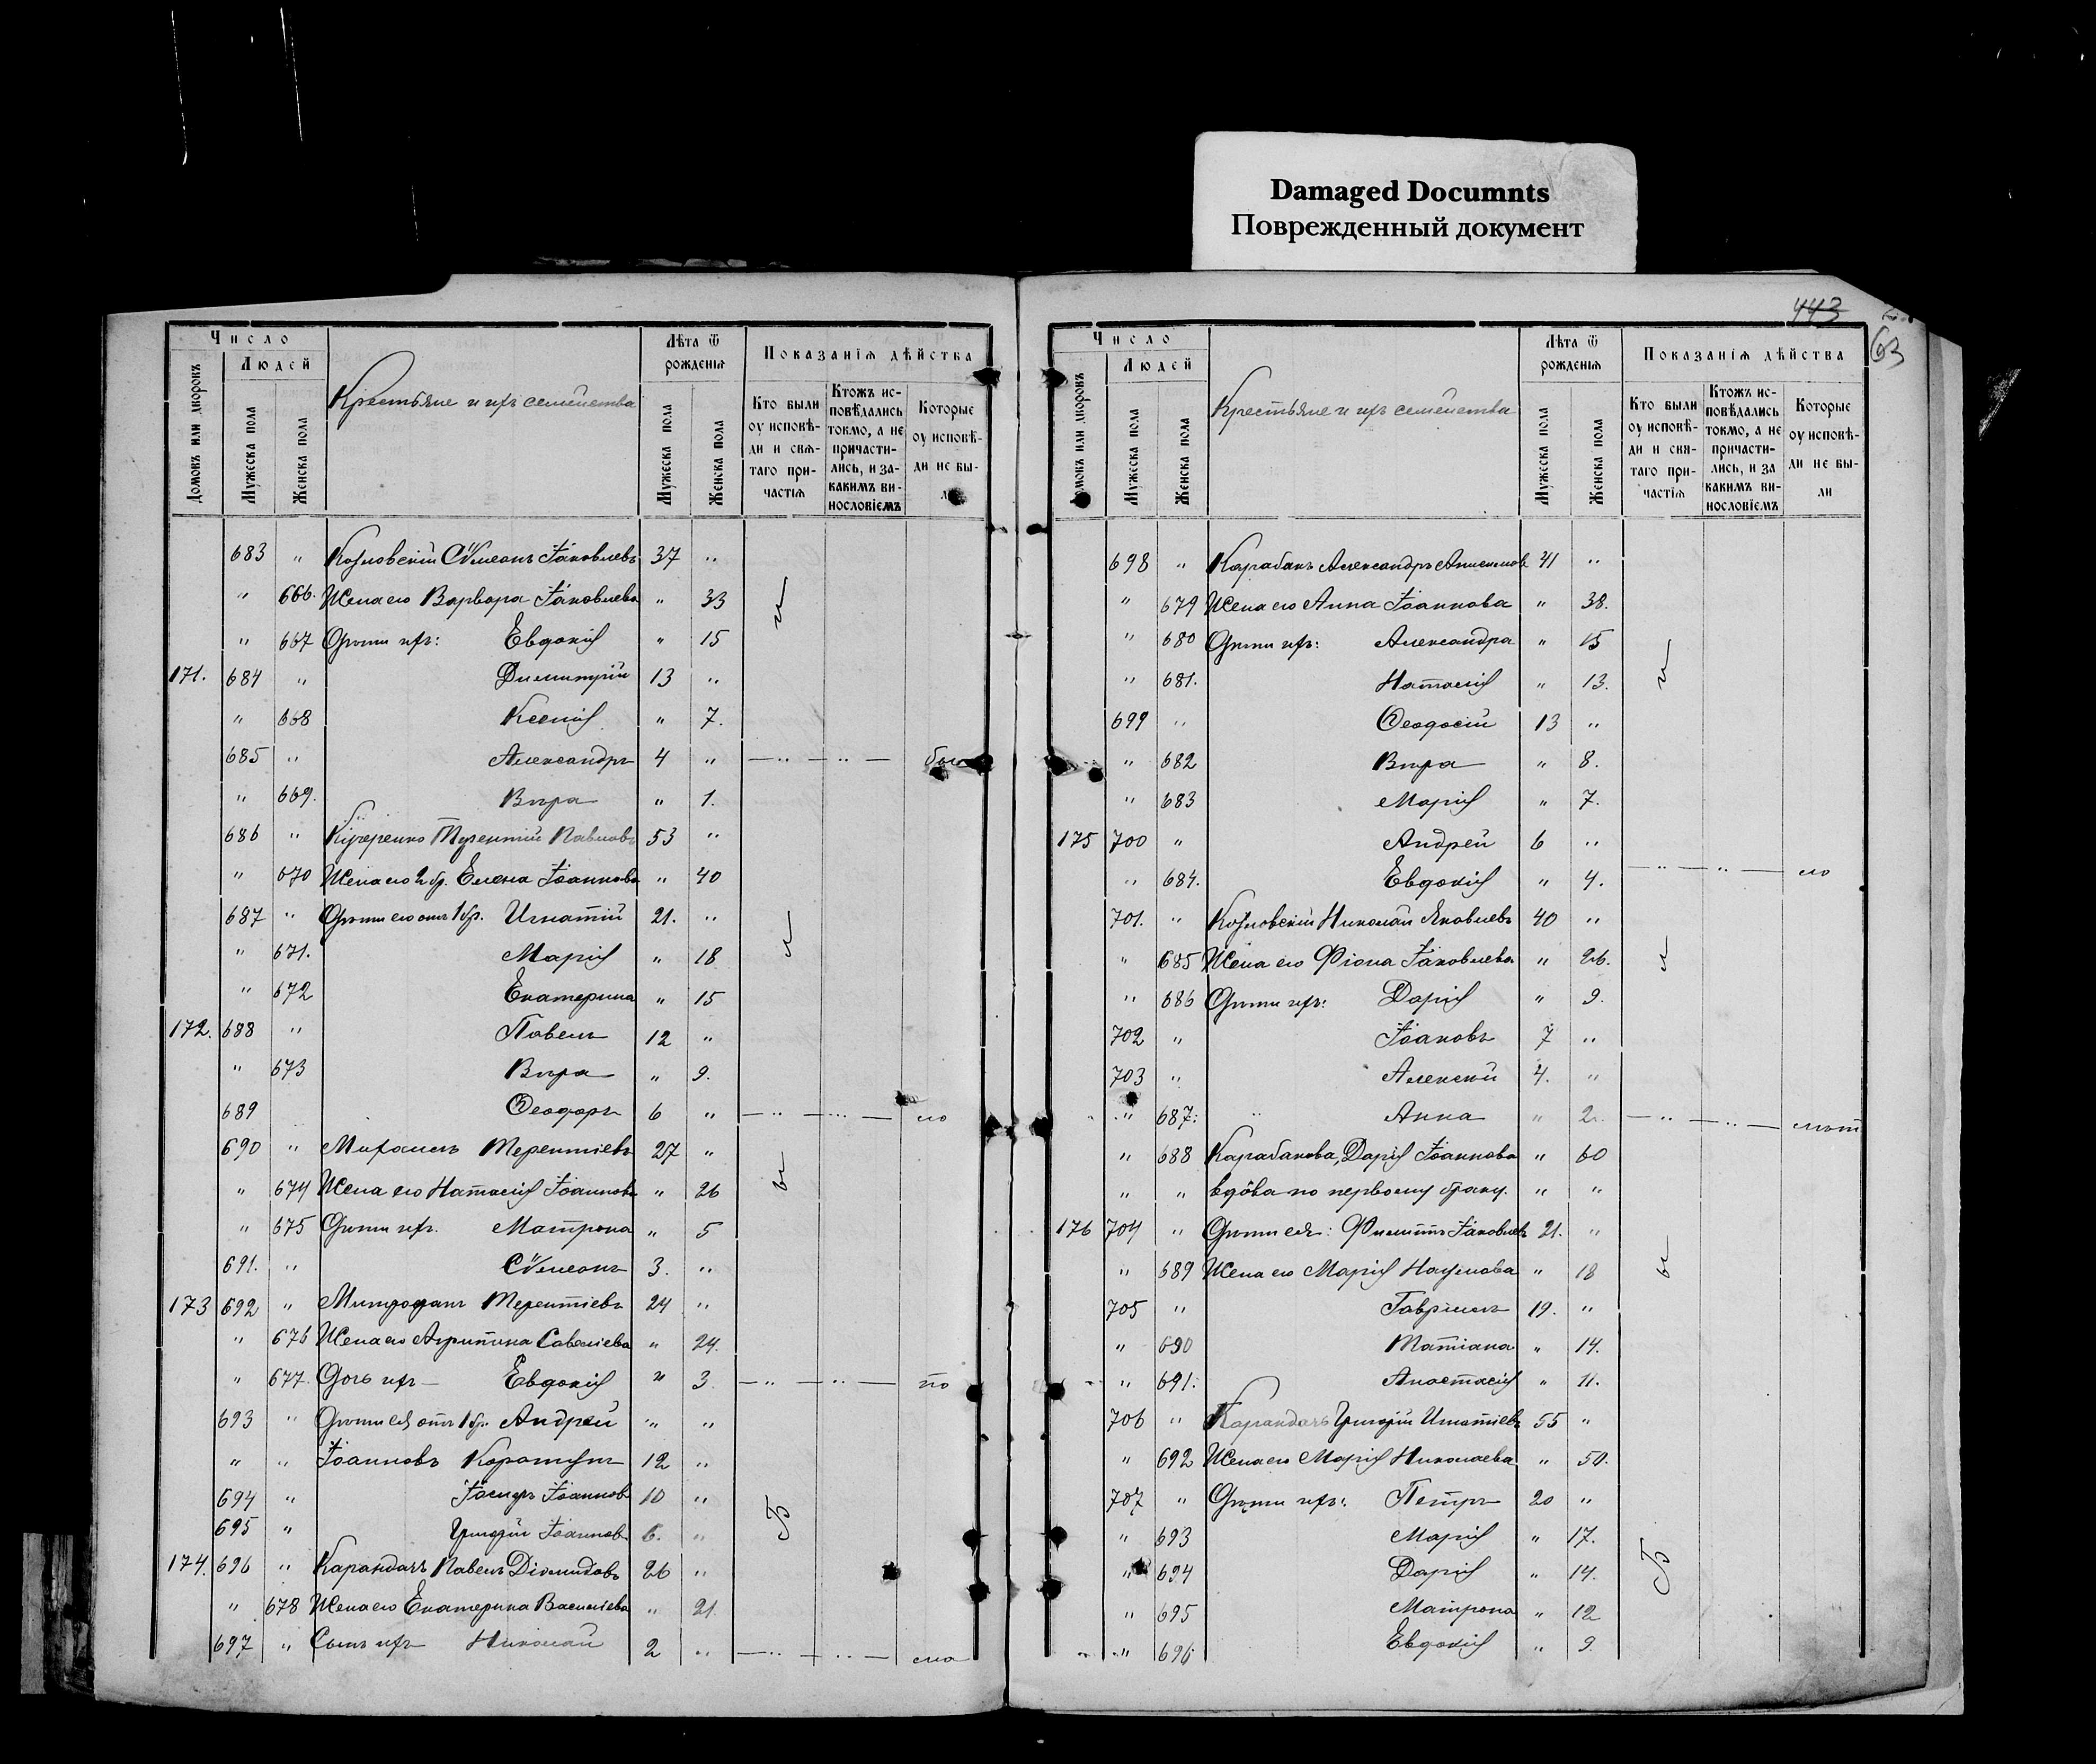 Damaged Documnts
Поврежденный документ
443
63
Число
Людей
Домовъ или дворовъ
Мужеска пола
Женска пола
Крестьяне и ихъ семейства
Лѣта ѿ рожденіѧ
Мужеска пола
Женска пола
Показаніѧ дѣйства
Кто были оу исповѣди и свѧтаго причастіѧ
Ктожъ исповѣдались токмо, а не причастились, и за какимъ винословіемъ
Которые оу исповѣди не бы-
683 " Козловскій Сѵмеонъ Іаковлевъ 37 "
" 666. Жена его Варвара Іаковлева " 33
" 667 Дѣти ихъ: Евдокія " 15
171. 684 " Димитрій 13 "
" 668 Ксенія " 7.
685 " Александръ 4 "
" 669. Вѣра " 1.
686 " Кучеренко Терентій Павловъ 53 "
" 670 Жена его 2 бр. Елена Іоаннова " 40
687 " Дѣти его отъ 1 бр. Игнатій 21. "
" 671. Марія " 18
" 672 Екатерина " 15
172. 688 " Павелъ 12 "
" 673 Вѣра " 9.
689 Ѳеодоръ 6 "
690 " Михаилъ Терентіевъ 27 "
" 674 Жена его Наталія Іоаннова " 26
" 675 Дѣти ихъ. Матрона " 5
691. " Сѵмеонъ 3. "
173 692 " Митрофанъ Терентіевъ 24 "
" 676 Жена его Агрипина Савеліева " 24.
" 677. Дочь ихъ Евдокія " 3
693 " Дѣти ея отъ 1 бр. Андрей " "
" " Іоанновъ Коротунъ 12 "
694 " Іосифъ Іоаннов 10 "
695 " Григорій Іоаннов 6. "
174. 696 " Карандачъ Павелъ Діомидовъ 26 "
" 678 Жена его Екатерина Василіева " 21.
697 " Сынъ ихъ Николай 2 "
Число
Людей
Домовъ или дворовъ
Мужеска пола
Женска пола
Крестьяне и ихъ семейства
Лѣта ѿ рожденіѧ
Мужеска пола
Женска пола
Показаніѧ дѣйства
Кто были оу исповѣди и свѧтаго причастіѧ
Ктожъ исповѣдались токмо, а не причастились, и за какимъ винословіемъ
Которые оу исповѣди не были
698 " Карабакъ Александръ Анисимов 41 "
" 679 Жена его Анна Іоаннова " 38.
" 680 Дѣти ихъ: Александра " 15
" 681. Наталія " 13.
699 " Ѳеодосій 13 "
" 682 Вѣра " 8.
" 683 Марія " 7.
175 700 " Андрей 6 "
" 684. Евдокія " 4.
701. " Козловскій Николай Яковлевъ 40 "
" 685 Жена его Фіона Іаковлева " 26.
" 686 Дѣти ихъ: Дарія " 9.
702 " Іаковъ 7 "
703 " Алексій 4. "
" 687: Анна " 2
" 688 Карабакова, Дарія Іоаннова " 60
" " вдова по первому браку. " "
176 704 " Дѣти ея: Филиппъ Іаковлев 21. "
" 689 Жена его Марія Наумова " 18
705 " Гавріилъ 19. "
" 690 Татіана " 14.
" 691. Анастасія " 11.
706 " Карандачъ Григорій Игнатіевъ 55 "
" 692 Жена его Марія Николаева " 50.
707 " Дѣти ихъ: Петръ 20 "
" 693 Марія " 17.
" 694 Дарія " 14.
" 695 Матрона " 12
" 696 Евдокія " 9.